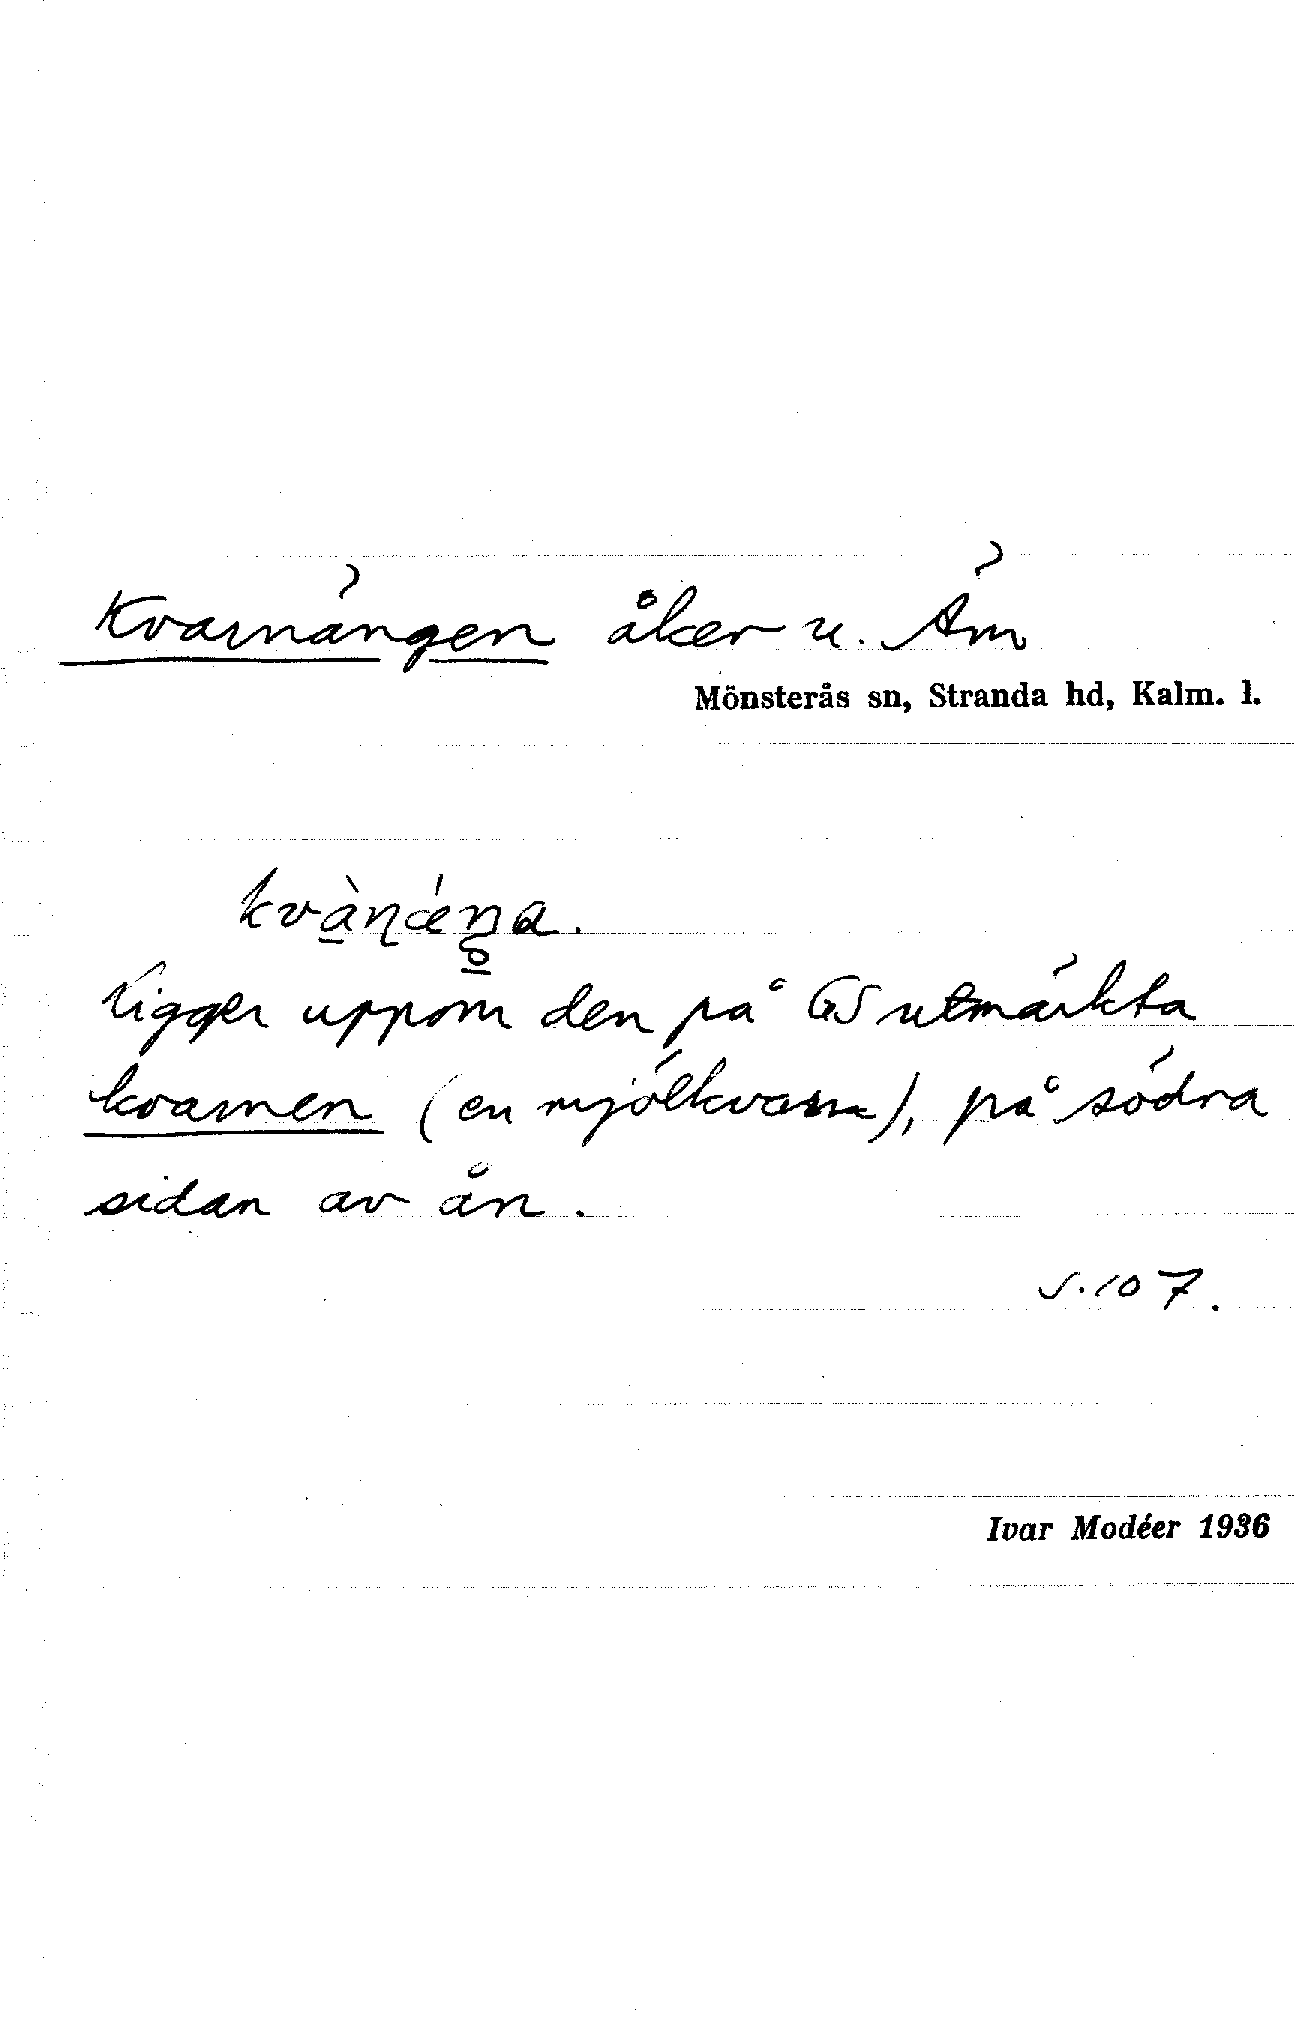 Kvarnängen åker u. Äm
Mönsterås sn, Stranda hd, Kalm. l.
Ligger uppom den på GS utmärkta
kvarnen (en mjölkvarn), på södra
sidan av ån.
s. 107.
Ivar Modéer 1936